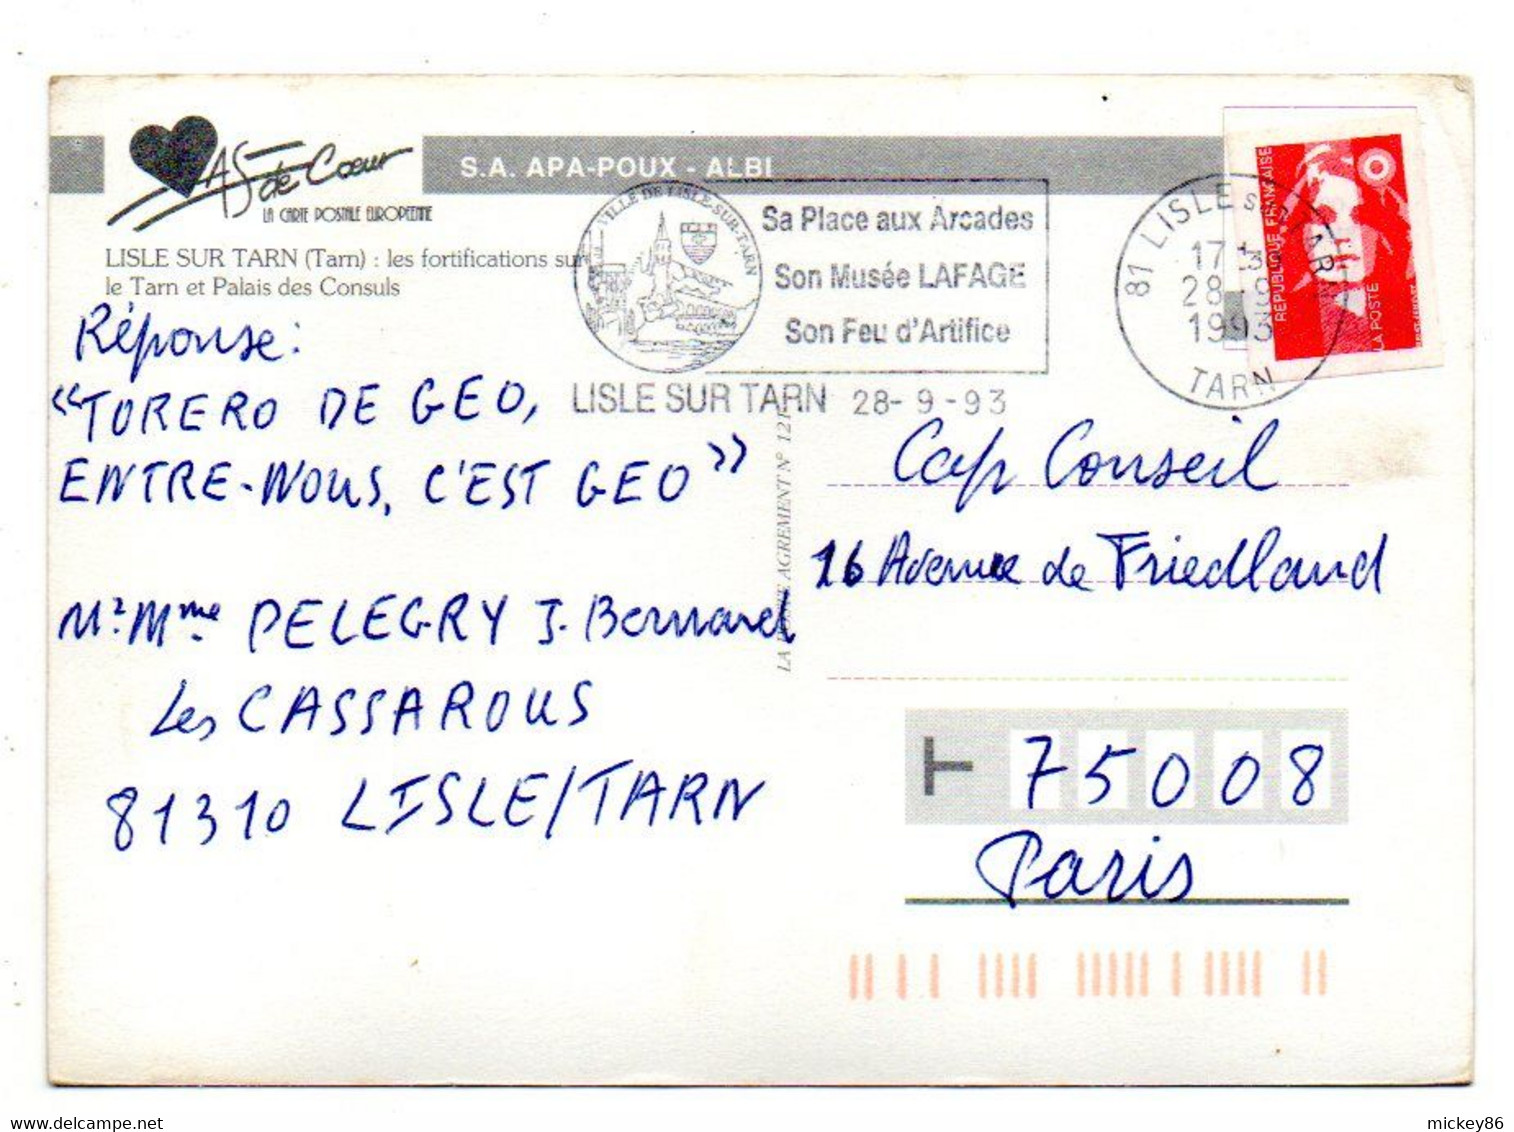 AS de Coeur
LA CARTE POSTALE EUROPEENNE
S.A. APA-POUX - ALBI
LISLE SUR TARN (Tarn) : les fortifications sur
le Tarn et Palais des Consuls
VILLE DE LISLE-SUR-TARN
Sa Place aux Arcades
Son Musée LAFAGE
Son Feu d'Artifice
LISLE SUR TARN 28-9-93
81 LISLE SUR TARN
17 H 3
28-9
1993
TARN
REPUBLIQUE FRANÇAISE
LA POSTE
Réponse :
"TORERO DE GEO,
ENTRE-NOUS, C'EST GEO"
Mr Mme PELEGRY J. Bernard
Les CASSAROUS
81310 LISLE/TARN
AGREMENT N° 121
Cap Conseil
16 Avenue de Friedland
75008
Paris
mickey86